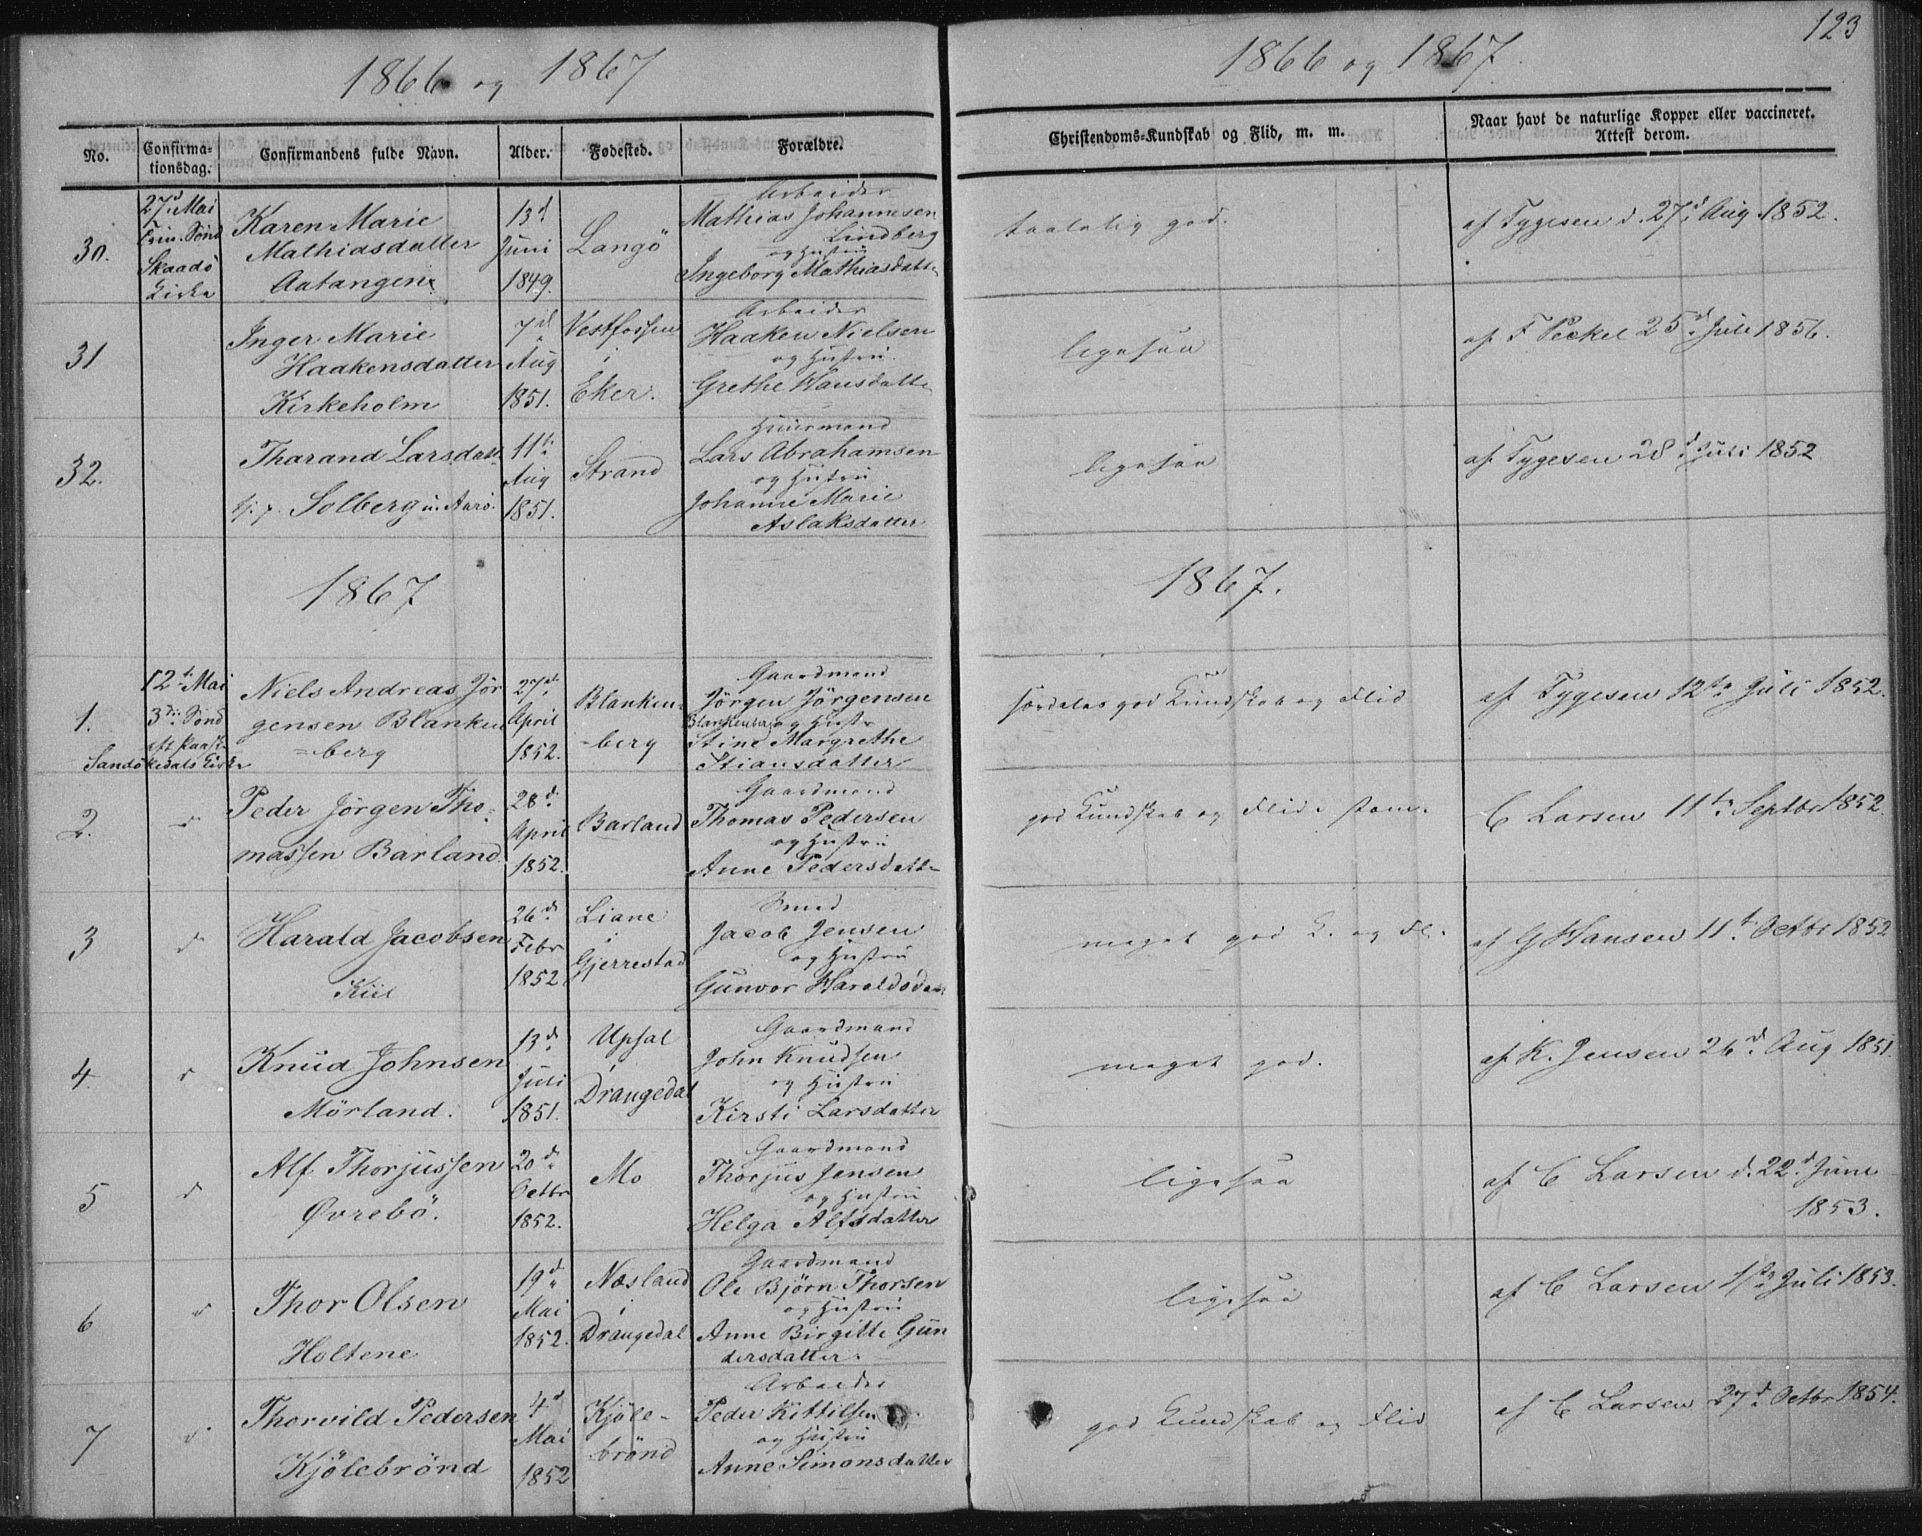 123
1866 og 1867
1866 og 1867.
No.
Confirma-
tionsdag.
Confirmandens fulde Navn.
Alder.
Fødested.
Forældre.
Christendoms-Kundskab og Flid, m. m.
Naar havt de naturlige Kopper eller vaccineret.
Attest derom.
30.
27d Mai
Trin. Sönd
Skaadö
Kirke
Karen Marie
Mathiasdatter
Aatangen
13d
Juni
1849.
Langö
Arbeider
Mathias Johannesen
Lindberg
og Hustru
Ingeborg Mathiasdatt
taalelig god.
af Tygesen d. 27d Aug 1852.
31
Inger Marie
Haakensdatter
Kirkeholm
7d
Aug
1851.
Vestfossen
i
Eker.
Arbeider
Haaken Nielsen
og Hustru
Grethe Hansdatt
ligesaa
af F Peckel 25d Juli 1856.
32.
Tharand Larsdatt
Solberg Aarö.
11te
Aug
1851.
Strand
Huusmand
Lars Abrahamsen
og Hustru
Johanne Marie
Aslaksdatter
ligesaa
af Tygesen 28d Juli 1852
1867
1867.
1.
12te Mai
3die Sönd
eft Paaske
Sandökedals Kirke
Niels Andreas Jör
gensen Blanken
=berg
27de
April
1852.
Blanken=
=berg
Gaardmand
Jörgen Jörgensen
Blankenberg og Hustr
Stine Margrethe
Stiansdatter
særdeles god Kundskab og Flid
af Tygesen 12te Juli 1852.
2.
Peder Jörgen Tho=
massen Barland
28d
April
1852.
Barland
Gaardmand
Thomas Pedersen
og Hustru
Anne Pedersdatt
god Kundskab og Flid.
C Larsen 11te Septbr 1852.
3
Harald Jacobsen
Kiil
26d
Febr
1852
Liane
i
Gjerrestad
Smed
Jacob Jensen
og Hustru
Gunvor Haraldsd
meget god K. og Fl.
af G Hansen 11te Octbr 1852
4.
Knud Johnsen
Mörland.
13d
Juli
1851.
Upsal
i
Drangedal
Gaardmand
John Knudsen
og Hustru
Kirsti Larsdatter
meget god.
af K. Jensen 26d Aug 1851.
5
Alf Thorjussen
Øvrebö.
20d
Octbr
1852.
Mo
Gaardmand
Thorjus Jensen
og Hustru
Helga Alfsdatter
ligesaa
af C Larsen d. 22d Juni
1853.
6
Thor Olsen
Holtene
19d
Mai
1852.
Næsland
i
Drangedal
Gaardmand
Ole Bjørn Thorsen
og Hustru
Anne Birgitte Gun
dersdatter.
ligesaa
af C Larsen 1ste Juli 1853.
7
Thorvild Pedersen
Kjölebrönd
4d
Mai
1852
Kjöle-
brönd
Arbeider
Peder Kittilsen
og Hustru
Anne Simonsdatter
god Kundskab og Flid
af C Larsen 27d Octbr 1854.